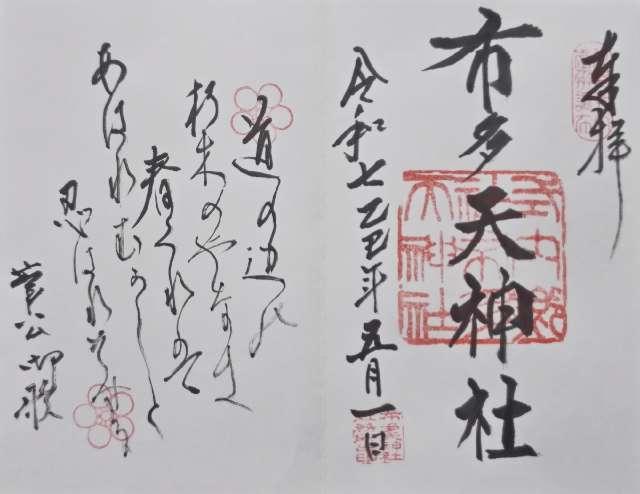 奉拝
布多天神社
令和七乙巳年五月一日
道の辺の
朽木のやなき
春くれは
あはれむかしと
忍はれそする
菅公御歌